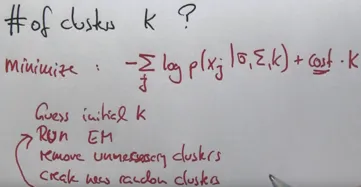 # of clusters k ?
minimize : - Σ_j log p(x_j | σ, Σ, k) + cost · k
Guess initial k
Run EM
remove unnecessary clusters
create new random clusters